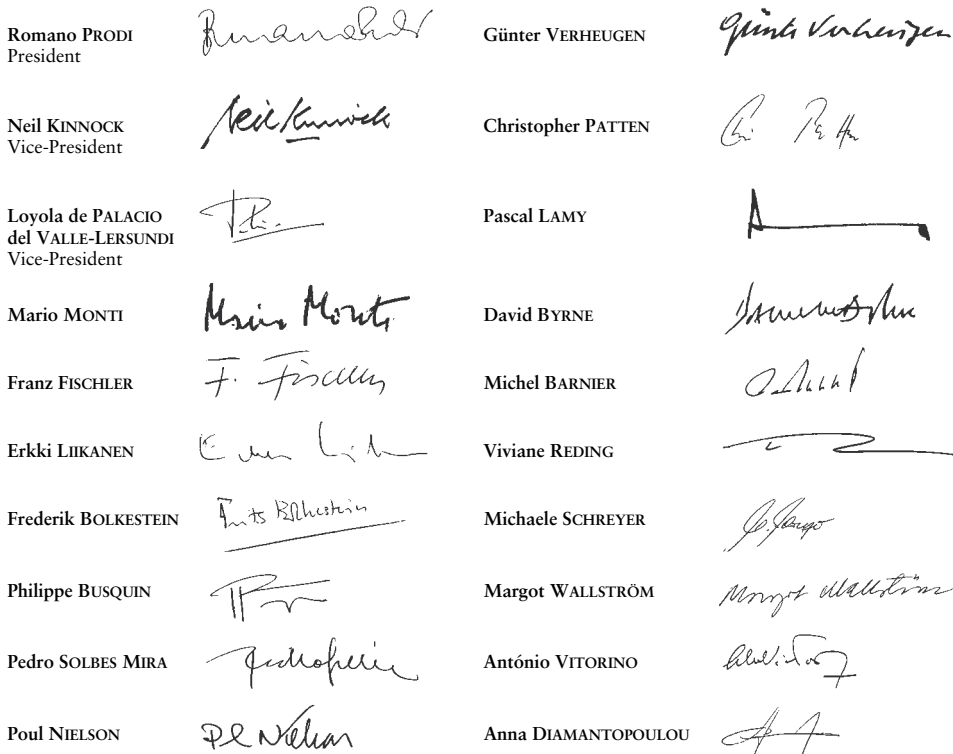 Romano PRODI
President
Neil KINNOCK
Vice-President
Neil Kinnock
Loyola de PALACIO
del VALLE-LERSUNDI
Vice-President
Mario MONTI
Mario Monti
Franz FISCHLER
F. Fischler
Erkki LIIKANEN
Frederik BOLKESTEIN
Frits Bolkestein
Philippe BUSQUIN
Pedro SOLBES MIRA
Poul NIELSON
Günter VERHEUGEN
Günter Verheugen
Christopher PATTEN
Pascal LAMY
David BYRNE
Michel BARNIER
Viviane REDING
Michaele SCHREYER
Margot WALLSTRÖM
Margot Wallström
António VITORINO
Anna DIAMANTOPOULOU